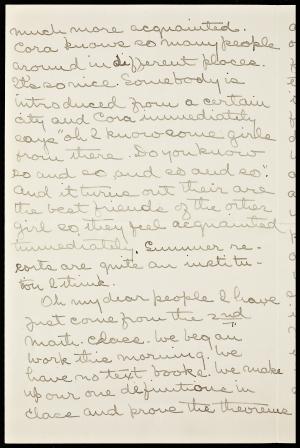 much more acquainted.
Cora knows so many people
around in different places.
It's so nice. Somebody is
introduced from a certain
city and Cora immediately
says "oh I know some girls
from there. Do you know
so and so and so and so".
And it turns out their are
the best friends of the other
girl so they feel acquainted
immediately. Summer re-
sorts are quite an institu-
tion I think.
Oh my dear people I have
just come from the 2nd
math. class. We began
work this morning. We
have no text books. We make
up our one definitions in
class and prove the theorems